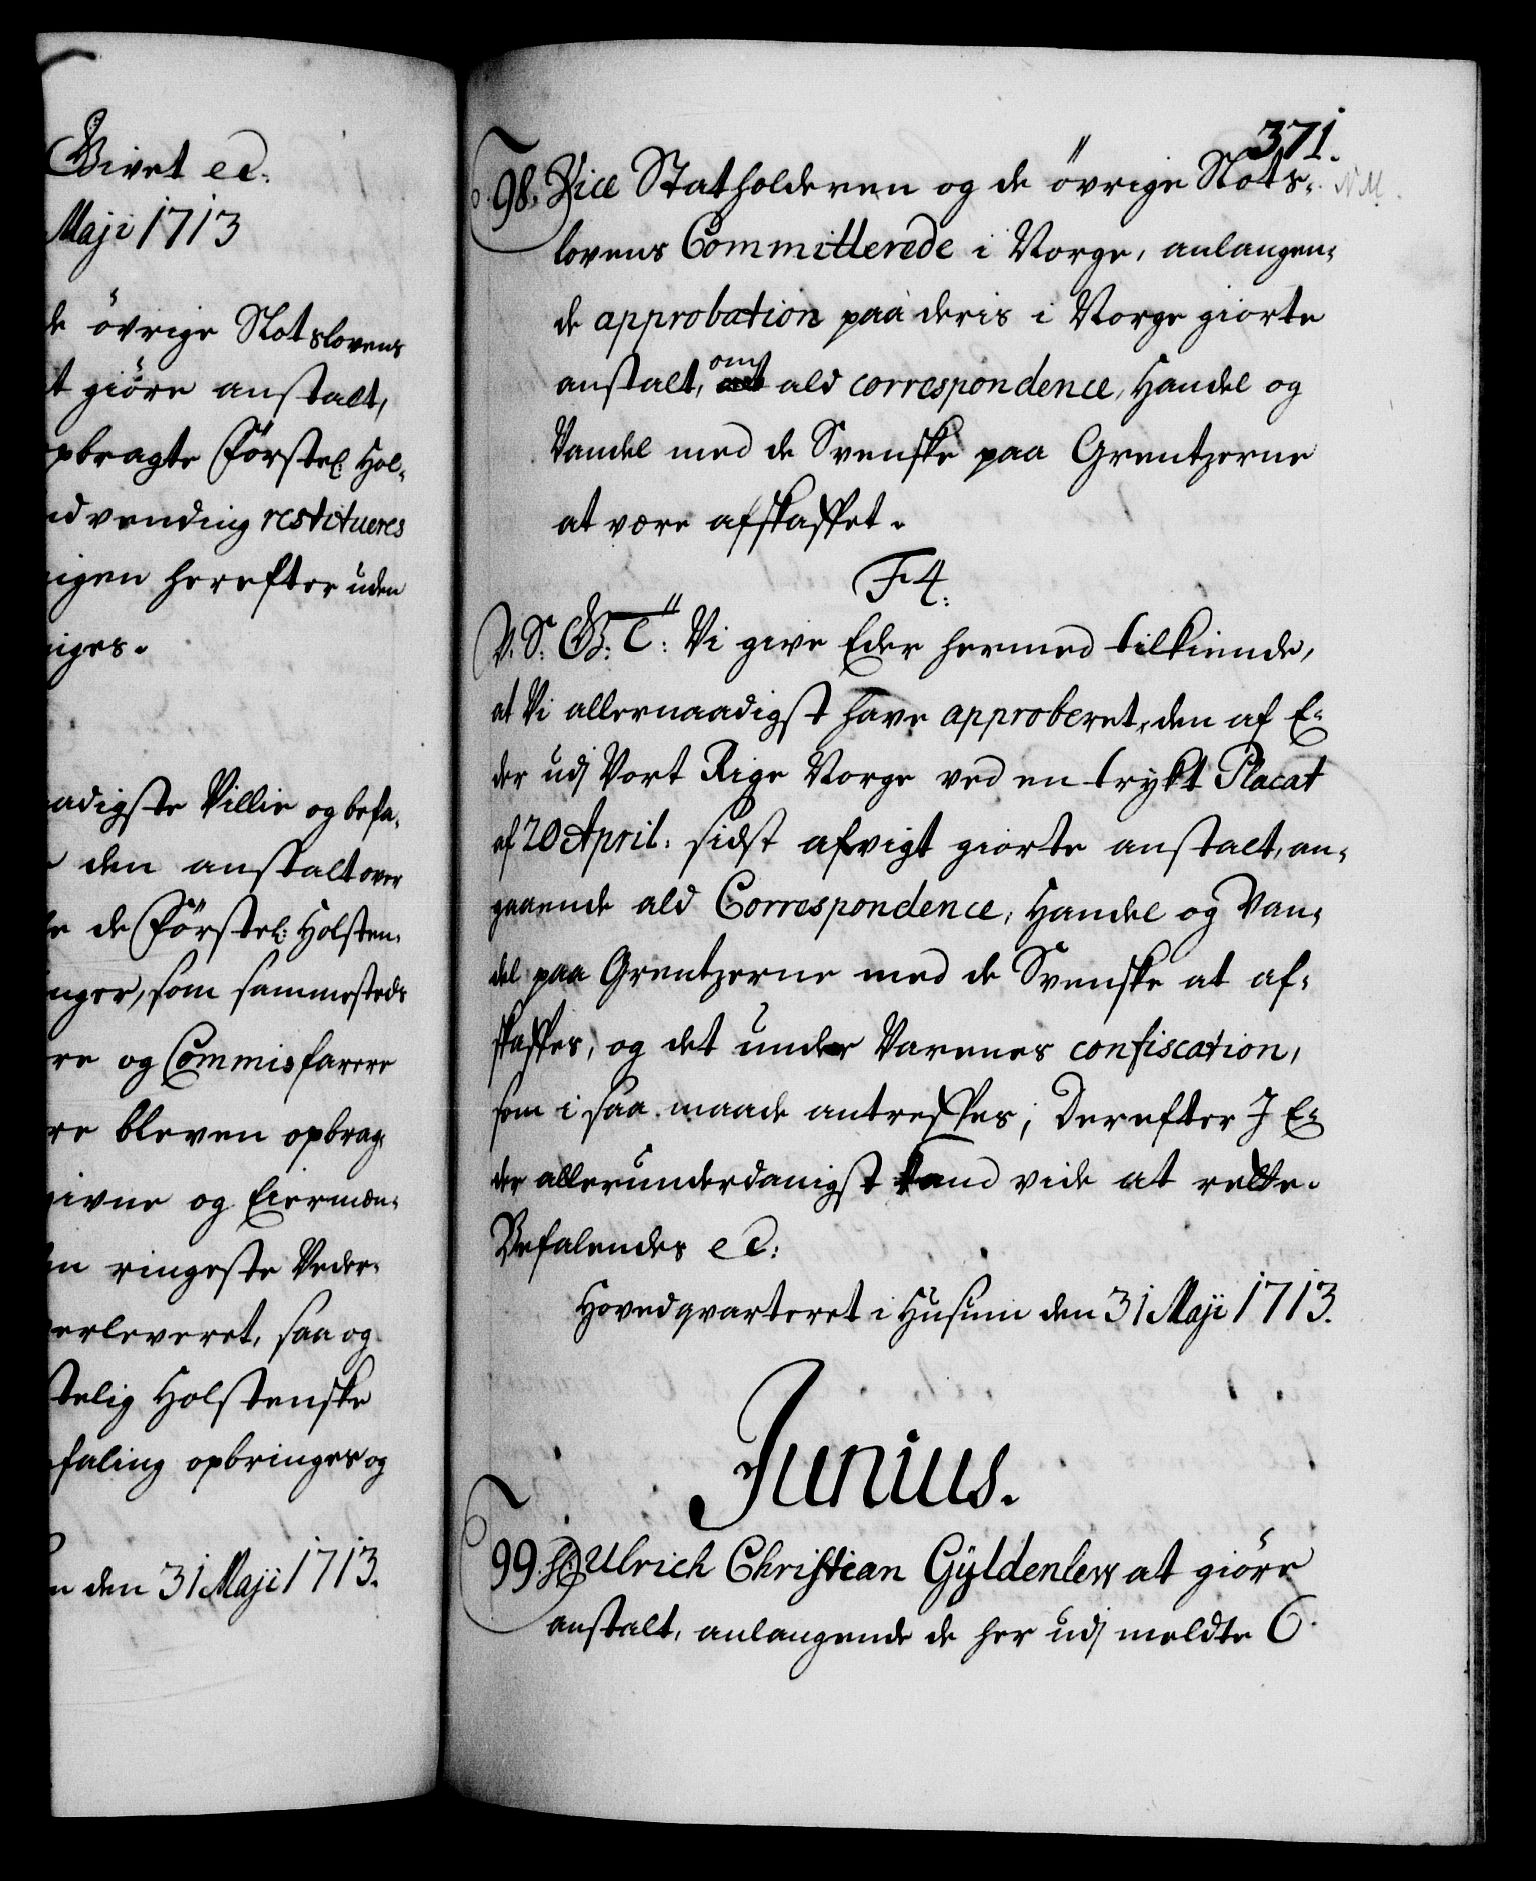 Givet ec:
Maji 1713
de övrige Slotslovens
t giöre anstalt,
pbragte Förstel: Hol-
ndvending restitueres
igen herefter uden
iges.
adigste Villie og befa-
den anstalt over
de Förstel: Holsten-
inger, som sammesteds
re og Commisfarere
re bleven opbrag-
givne og Eiermæn-
en ringeste Veder-
erleveret, saa og
stelig Holstenske
faling opbringes og
n den 31 Maji 1713.
371.
NM.
98. Vice Statholderen og de övrige Slots-
lovens Committerede i Norge, anlangen-
de approbation paa deris i Norge giorte
anstalt, om ald correspondence, Handel og
Vandel med de Svenske paa Grentzerne
at være afskaffet.
F4.
V. S. G. T: Vi give Eder hermed tilkiende,
at Vi allernaadigst have approberet, den af E-
der udj Vort Rige Norge ved en trykt Placat
af 20 April: sidst afvigt giorte anstalt, an-
gaaende ald Correspondence, Handel og Van-
del paa Grentzerne med de Svenske at af-
skaffes, og det under Varenes confiscation,
som i saa maade antreffes; Derefter I E-
der allerunderdanigst kand vide at rette.
Befalendes ec:
Hovedqvarteret i Husum den 31 Maji 1713.
Junius.
99. Ulrich Christian Gyldenlew at giöre
anstalt, anlangende de her udj meldte 6